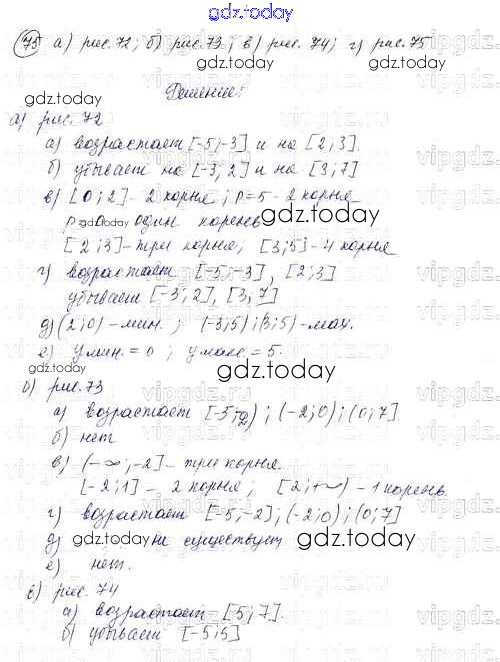 gdz.today
75 а) рис. 72; б) рис. 73; в) рис. 74; г) рис. 75
gdz.today
Решение:
gdz.today
а) рис. 72
а) возрастает [-5;-3] и на [2;3].
б) убывает на [-3;2] и на [3;7]
в) [0;2] - 2 корня; p=5 - 2 корня
gdz.today
один корень
gdz.today
[2;3] - три корня; [3;5] - 4 корня
г) возрастает [-5;-3], [2;3]
убывает [-3;2], [3,7]
д) (2;0) - мин.; (-3;5);(3;5) - мах.
е) у мин. = 0; у макс. = 5.
gdz.today
б) рис. 73
а) возрастает [-5;-2); (-2;0); (0;7]
gdz.today
б) нет
в) (-∞;-2] - три корня.
[-2;1] - 2 корня; [2;+∞) - 1 корень
г) возрастает [-5,-2]; (-2;0); (0;7]
д) не существует
gdz.today
gdz.today
е) нет.
в) рис. 74
а) возрастает [5;7].
б) убывает [-5;5]
gdz.today
vipgdz